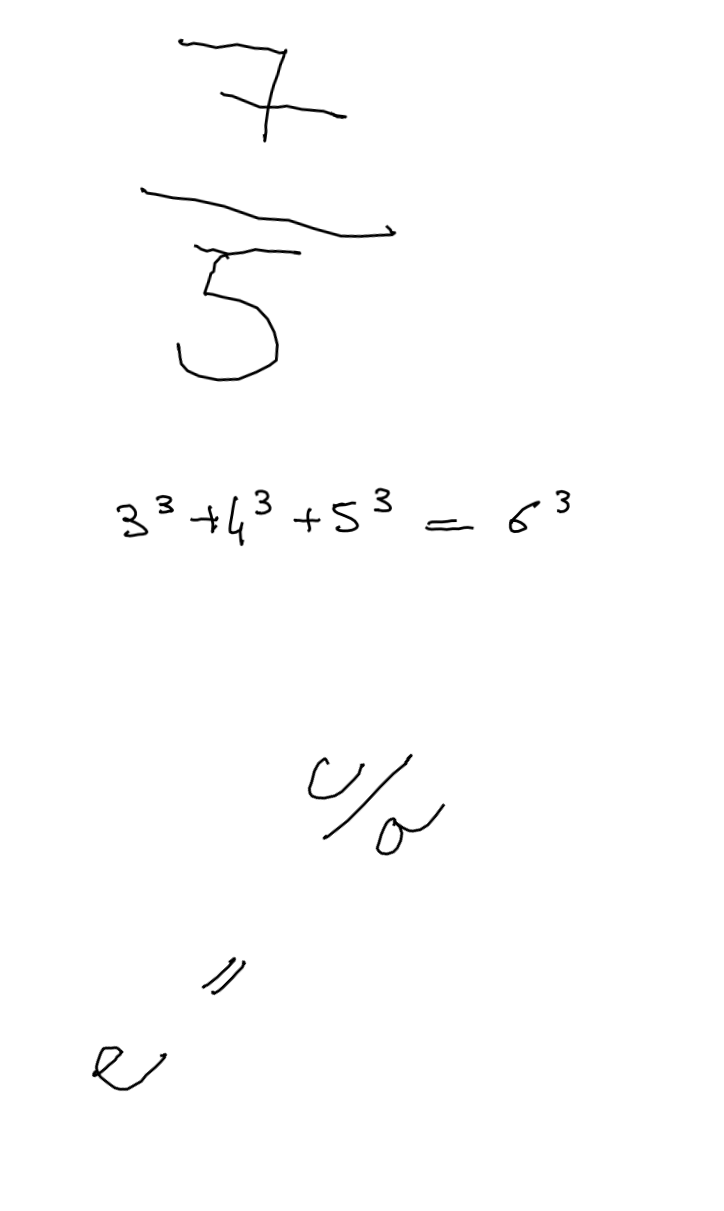 7
5
3³ + 4³ + 5³ = 6³
c/o
"
e